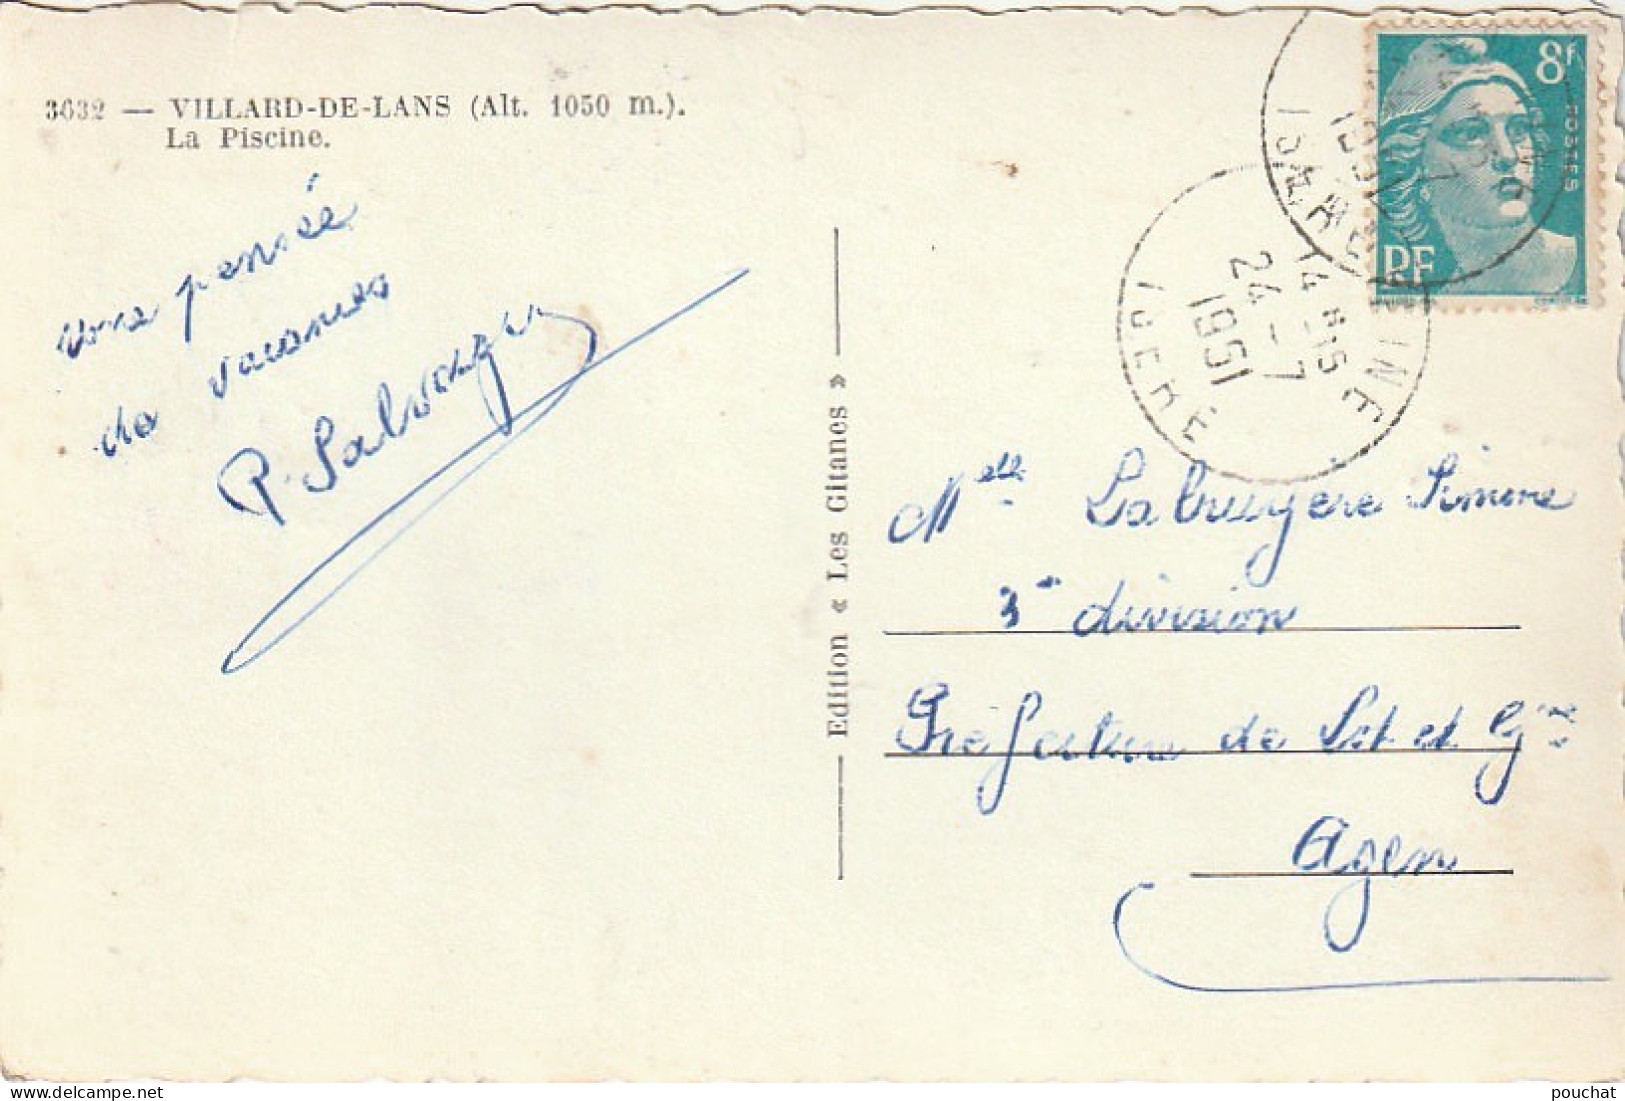 3632 — VILLARD-DE-LANS (Alt. 1050 m.).
La Piscine.
une pensée
de vacances
Edition « Les Gitanes »
8f
POSTES
RF
14 H 15
24 - 7
1951
ISERE
Melle Labruyère Simone
3e division
Préfecture de Lot et Gne
Agen
pouchat